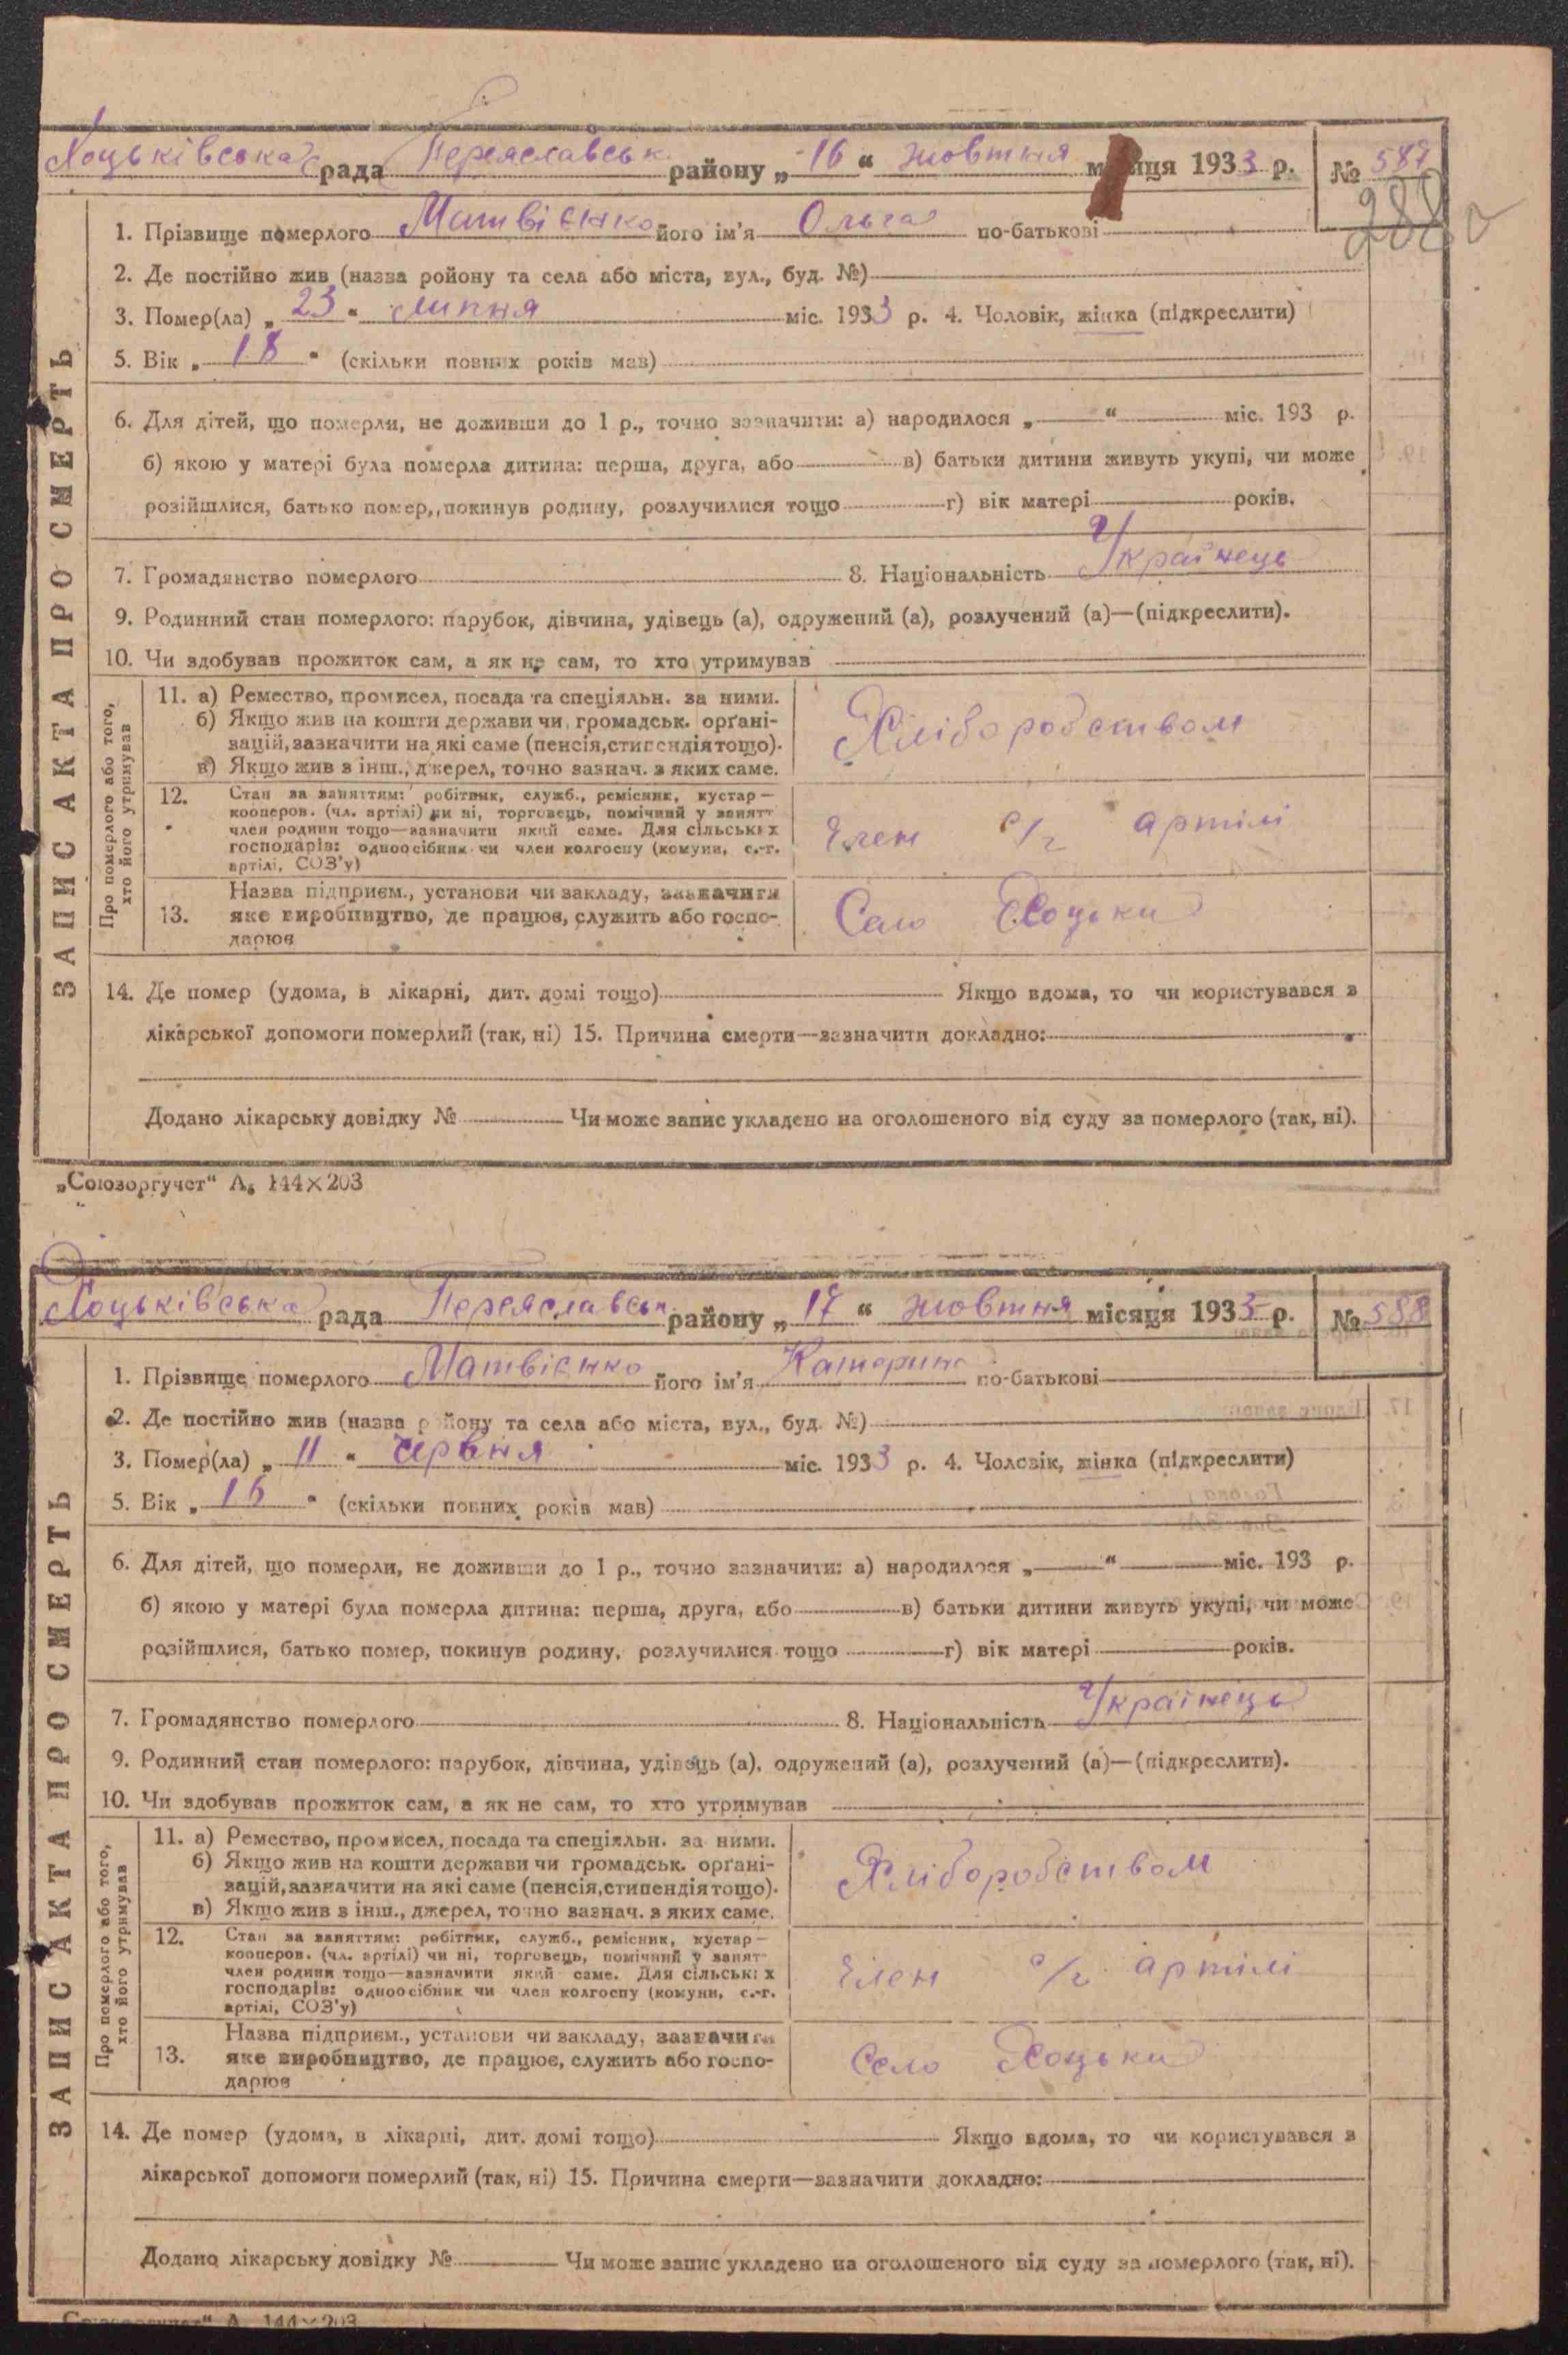 Хоцьківська рада Переяславськ. району „ 16 “ жовтня місяця 1933 р. № 587
288
1. Прізвище померлого Матвієнко його ім'я Ольга по-батькові
2. Де постійно жив (назва ройону та села або міста, вул., буд. №)
3. Помер(ла) „ 23 “ липня міс. 1933 р. 4. Чоловік, жінка (підкреслити)
5. Вік „ 18 “ (скільки повних років мав)
6. Для дітей, що померли, не доживши до 1 р., точно зазначити: а) народилося „ “ міс. 193 р.
б) якою у матері була померла дитина: перша, друга, або в) батьки дитини живуть укупі, чи може
розійшлися, батько помер, покинув родину, розлучилися тощо г) вік матері років.
7. Громадянство померлого 8. Національність Українець
9. Родинний стан померлого: парубок, дівчина, удівець (а), одружений (а), розлучений (а)—(підкреслити).
10. Чи здобував прожиток сам, а як не сам, то хто утримував
ЗАПИС АКТА ПРО СМЕРТЬ
Про померлого або того,
хто його утримував
11. а) Ремество, промисел, посада та спеціяльн. за ними.
б) Якщо жив на кошти держави чи громадськ. орґані-
зацій, зазначити на які саме (пенсія, стипендія тощо).
в) Якщо жив з інш., джерел, точно зазнач. з яких саме.
Хліборобством
12. Стан за заняттям: робітник, служб., ремісник, кустар—
кооперов. (чл. артілі) чи ні, торговець, помічний у занятт
член родини тощо—зазначити який саме. Для сільських
господарів: одноосібник чи член колгоспу (комуни, с.-г.
артілі, СОЗ'у)
Член с/г артілі
13. Назва підприєм., установи чи закладу, зазначити
яке виробництво, де працює, служить або госпо-
дарює
Село Хоцьки
14. Де помер (удома, в лікарні, дит. домі тощо) Якщо вдома, то чи користувався з
лікарської допомоги померлий (так, ні) 15. Причина смерти—зазначити докладно:
Додано лікарську довідку № Чи може запис укладено на оголошеного від суду за померлого (так, ні).
„Союзоргучет“ А₅ 144×203
Хоцьківська рада Переяславськ. району „ 17 “ жовтня місяця 1933 р. № 588
1. Прізвище померлого Матвієнко його ім'я Катерина по-батькові
2. Де постійно жив (назва ройону та села або міста, вул., буд. №)
3. Помер(ла) „ 11 “ червня міс. 1933 р. 4. Чоловік, жінка (підкреслити)
5. Вік „ 16 “ (скільки повних років мав)
6. Для дітей, що померли, не доживши до 1 р., точно зазначити: а) народилося „ “ міс. 193 р.
б) якою у матері була померла дитина: перша, друга, або в) батьки дитини живуть укупі, чи може
розійшлися, батько помер, покинув родину, розлучилися тощо г) вік матері років.
7. Громадянство померлого 8. Національність Українець
9. Родинний стан померлого: парубок, дівчина, удівець (а), одружений (а), розлучений (а)—(підкреслити).
10. Чи здобував прожиток сам, а як не сам, то хто утримував
ЗАПИС АКТА ПРО СМЕРТЬ
Про померлого або того,
хто його утримував
11. а) Ремество, промисел, посада та спеціяльн. за ними.
б) Якщо жив на кошти держави чи громадськ. орґані-
зацій, зазначити на які саме (пенсія, стипендія тощо).
в) Якщо жив з інш., джерел, точно зазнач. з яких саме.
Хліборобством
12. Стан за заняттям: робітник, служб., ремісник, кустар—
кооперов. (чл. артілі) чи ні, торговець, помічний у занят-
член родини тощо—зазначити який саме. Для сільських
господарів: одноосібник чи член колгоспу (комуни, с.-г.
артілі, СОЗ'у)
Член с/г артілі
13. Назва підприєм., установи чи закладу, зазначити
яке виробництво, де працює, служить або госпо-
дарює
Село Хоцьки
14. Де помер (удома, в лікарні, дит. домі тощо) Якщо вдома, то чи користувався з
лікарської допомоги померлий (так, ні) 15. Причина смерти—зазначити докладно:
Додано лікарську довідку № Чи може запис укладено на оголошеного від суду за померлого (так, ні).
А 144×203